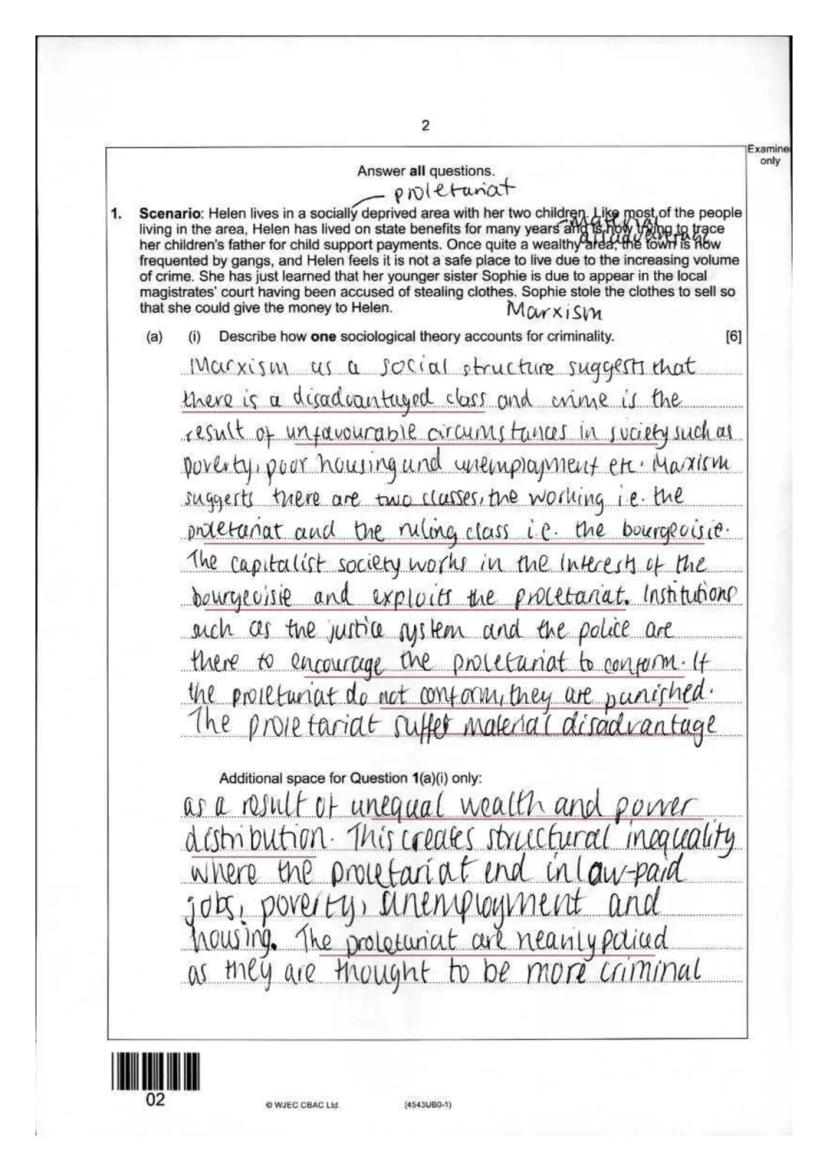 2
Examine
only
Answer all questions.
proletariat
1. Scenario: Helen lives in a socially deprived area with her two children. Like most of the people
living in the area, Helen has lived on state benefits for many years and is now trying to trace
her children's father for child support payments. Once quite a wealthy area, the town is now
frequented by gangs, and Helen feels it is not a safe place to live due to the increasing volume
of crime. She has just learned that her younger sister Sophie is due to appear in the local
magistrates' court having been accused of stealing clothes. Sophie stole the clothes to sell so
that she could give the money to Helen.
Material
disadvantage
Marxism
(a) (i) Describe how one sociological theory accounts for criminality. [6]
Marxism as a social structure suggests that
there is a disadvantaged class and crime is the
result of unfavourable circumstances in society such as
poverty, poor housing and unemployment etc. Marxism
suggests there are two classes, the working i.e. the
proletariat and the ruling class i.e. the bourgeoisie.
The capitalist society works in the interests of the
bourgeoisie and exploits the proletariat. Institutions
such as the justice system and the police are
there to encourage the proletariat to conform. If
the proletariat do not conform, they are punished.
The proletariat suffer material disadvantage
Additional space for Question 1(a)(i) only:
as a result of unequal wealth and power
distribution. This creates structural inequality
where the proletariat end in law-paid
jobs, poverty, unemployment and
housing. The proletariat are heavily policed
as they are thought to be more criminal
02
© WJEC CBAC Ltd.
(4543UB0-1)